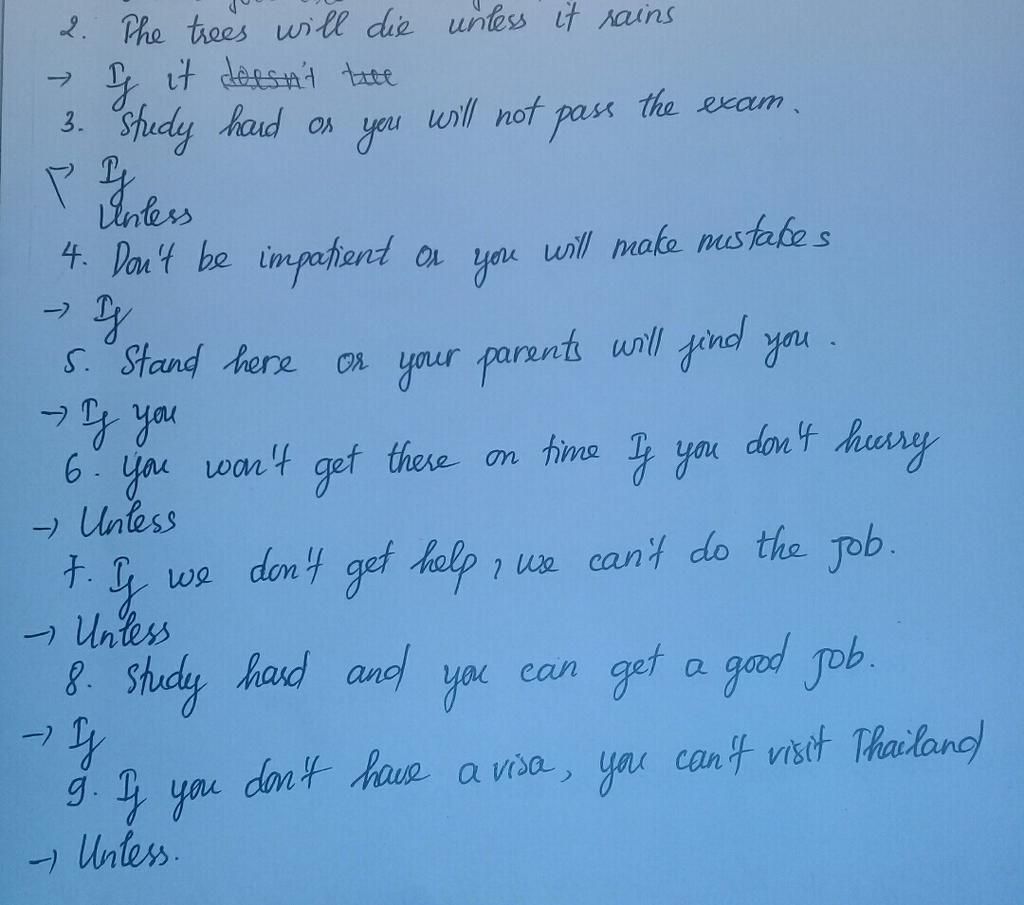 2. The trees will die unless it rains
→ If it doesn't tree
3. Study hard or you will not pass the exam.
→ If
Unless
4. Don't be impatient or you will make mistakes
→ If
5. Stand here or your parents will find you.
→ If you
6. you won't get there on time If you don't hurry
→ Unless
7. If we don't get help, we can't do the Job.
→ Unless
8. Study hard and you can get a good Job.
→ If
9. If you don't have a visa, you can't visit Thailand
→ Unless.